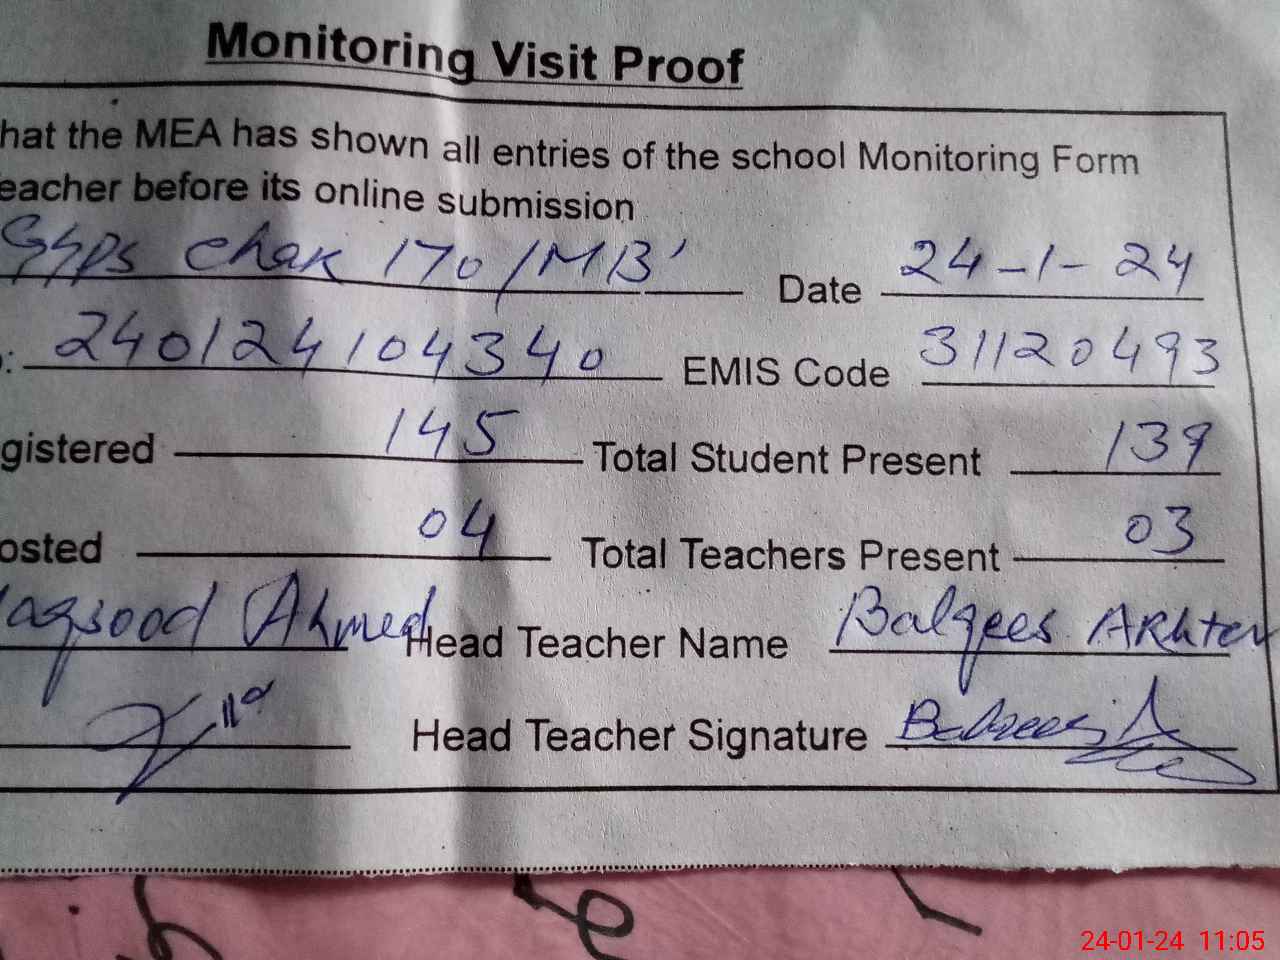 Monitoring Visit Proof
hat the MEA has shown all entries of the school Monitoring Form
eacher before its online submission
GGPS Chak 170/MB Date 24-1-24
: 240124104340 EMIS Code 31120493
gistered 145 Total Student Present 139
osted 04 Total Teachers Present 03
aqsood Ahmed Head Teacher Name Balqees Akhter
Head Teacher Signature Balqees A
24-01-24 11:05